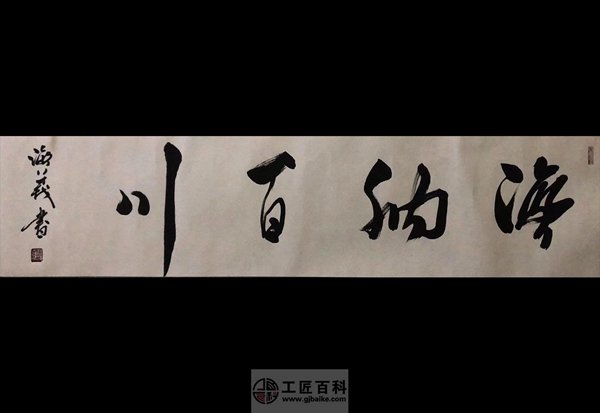 海纳百川
海義書
工匠百科
www.gjbaike.com